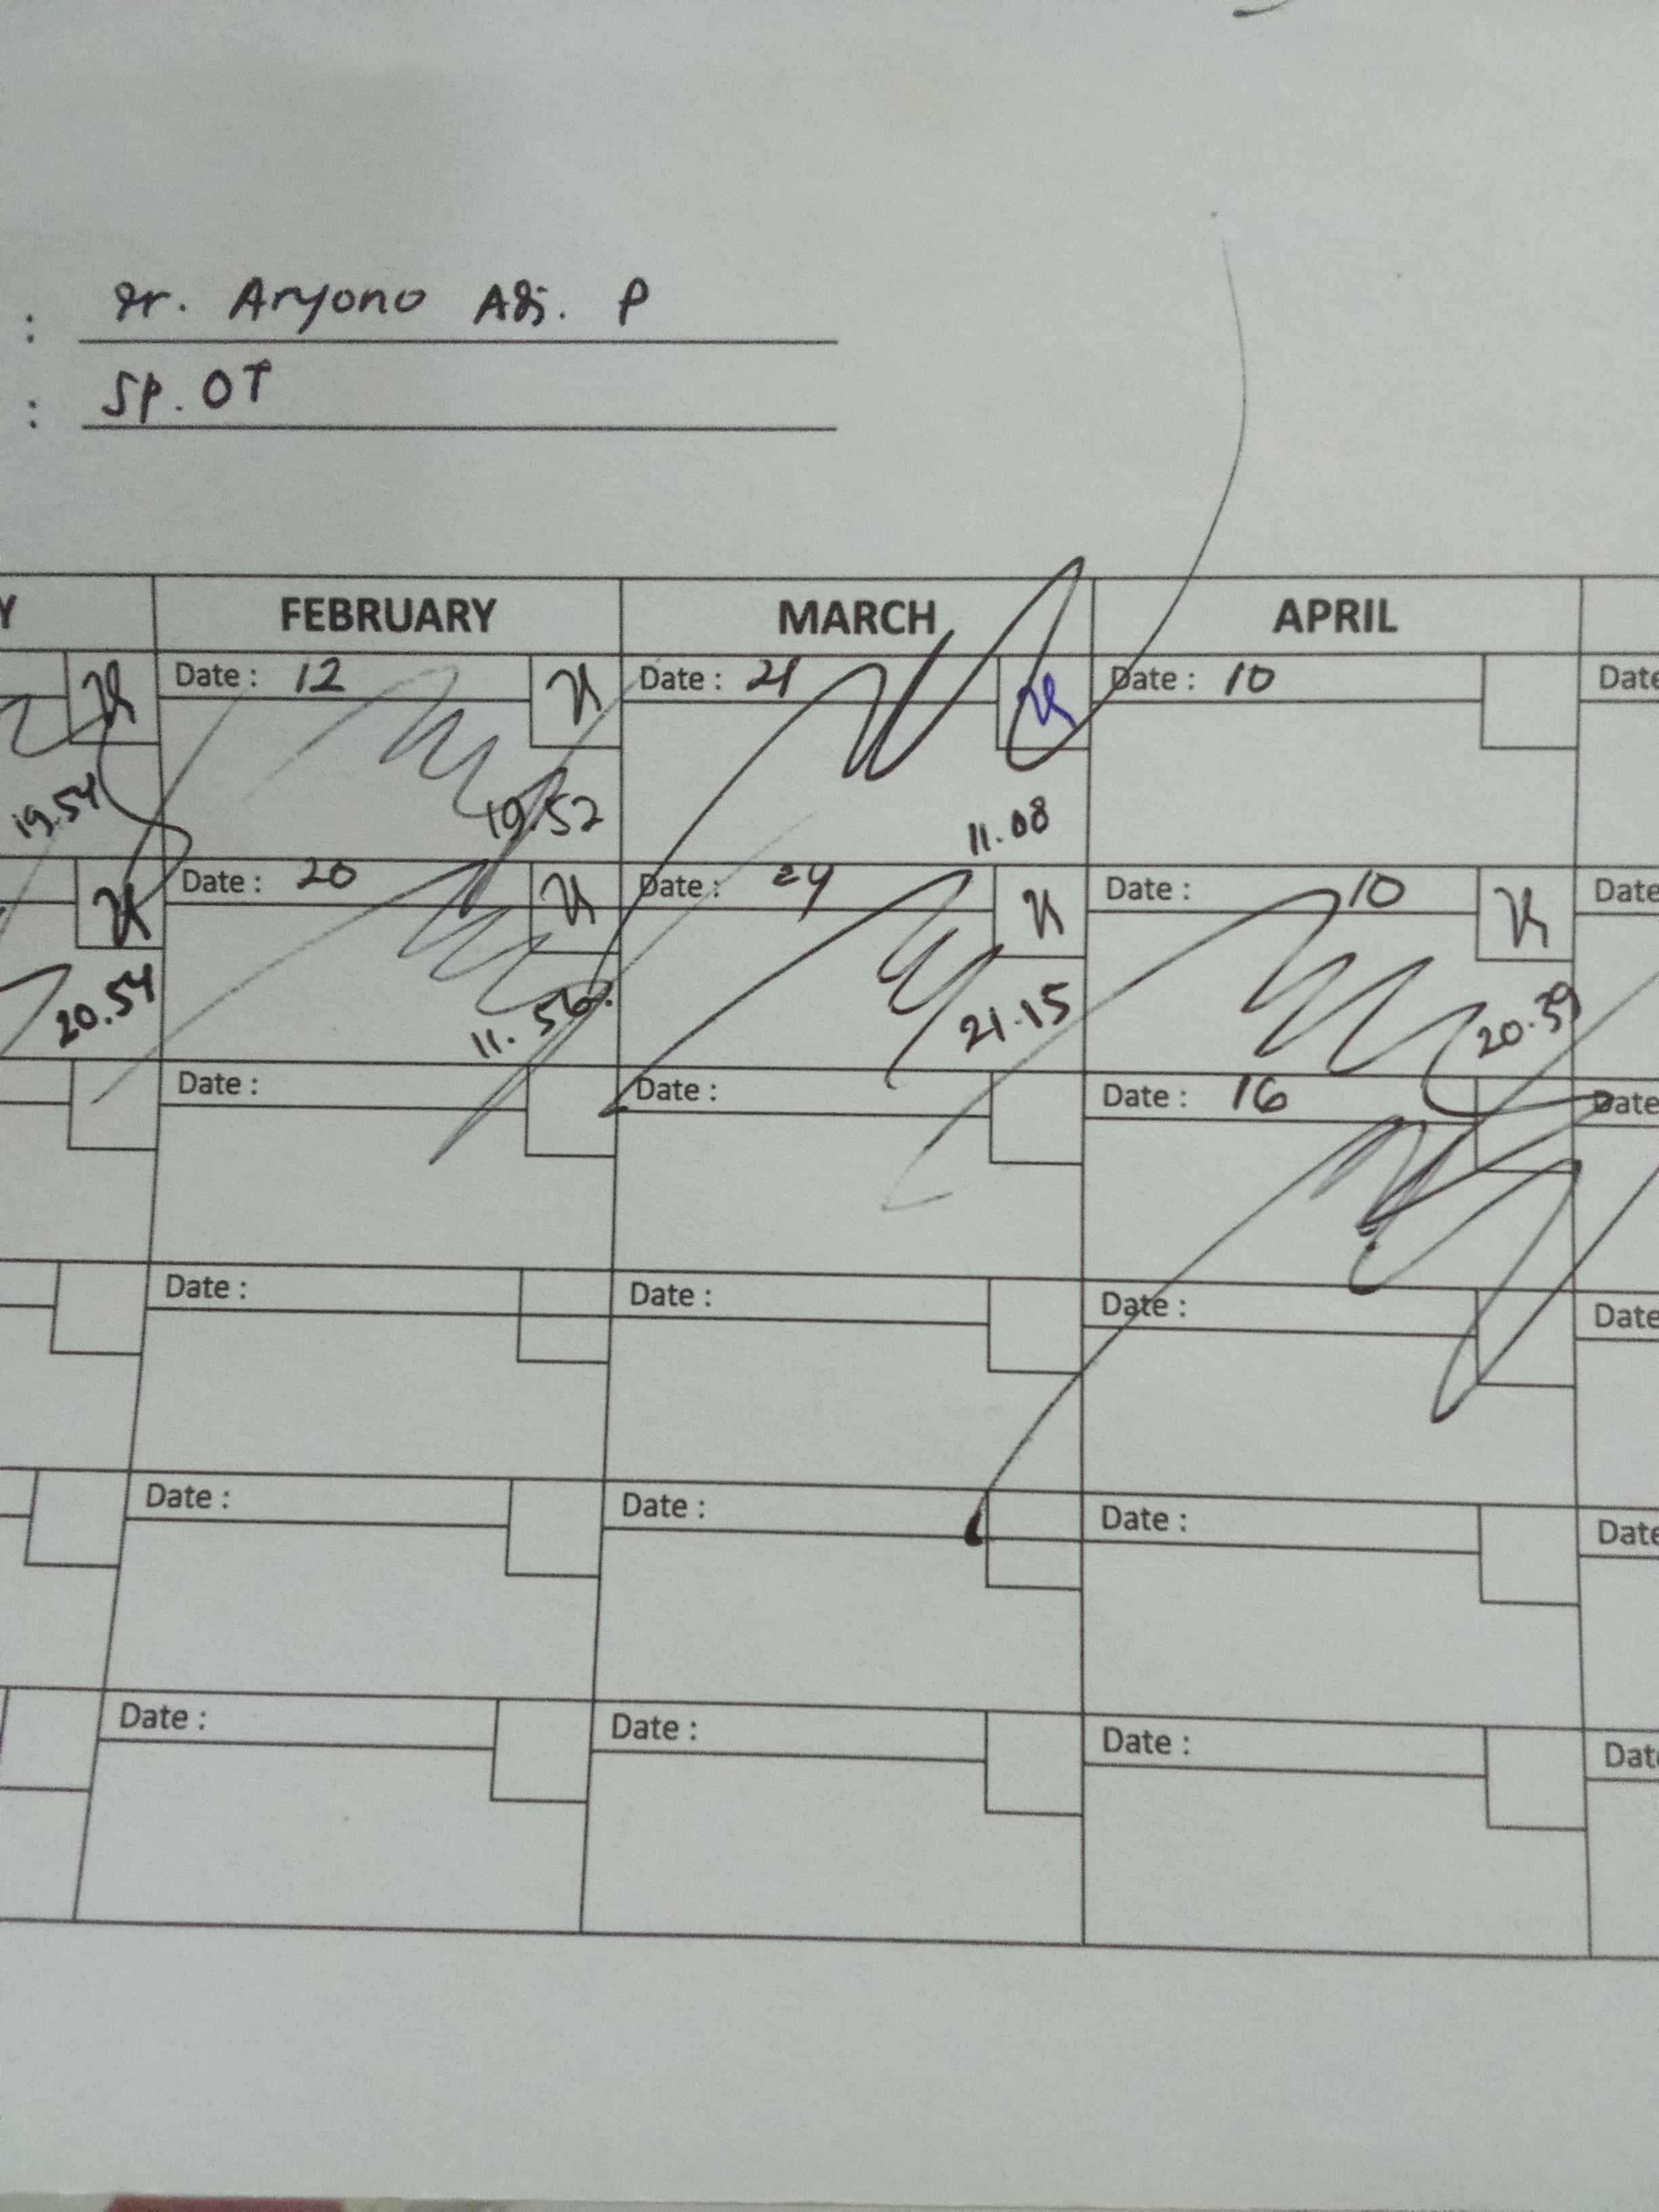 : dr. Aryono Adi. P
: Sp. OT
Y FEBRUARY MARCH APRIL
Date : 12 Date : 21 Date : 10 Date
19.54 19.52 11.08
Date : 20 Date : 24 Date : 10 Date
20.54 11.56 21.15 20.39
Date : Date : Date : 16 Date
Date : Date : Date : Date
Date : Date : Date : Date
Date : Date : Date : Date